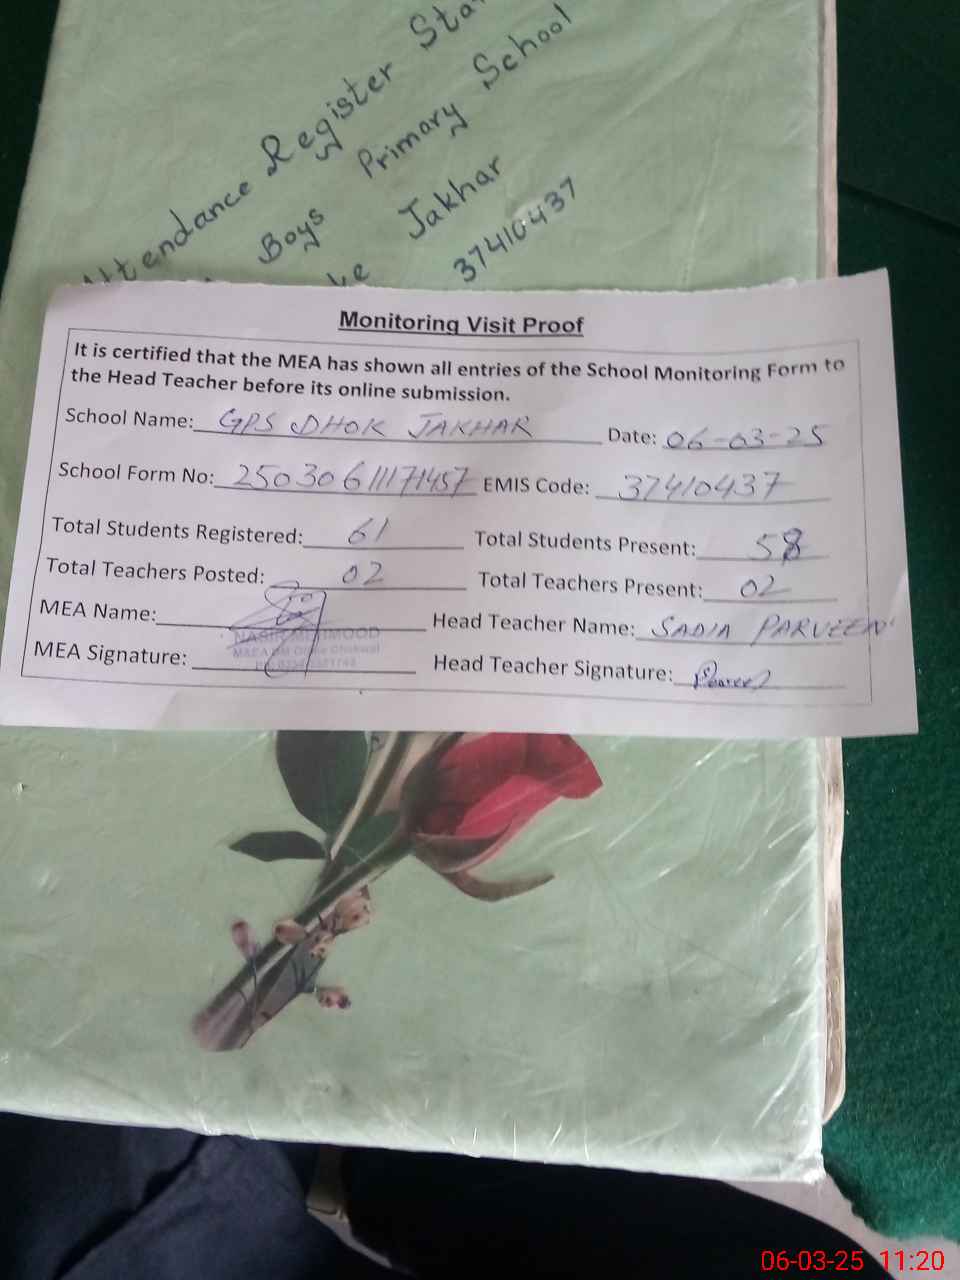 Attendance Register
Boys Primary School
Jakhar
37410437
Monitoring Visit Proof
It is certified that the MEA has shown all entries of the School Monitoring Form to
the Head Teacher before its online submission.
School Name: GPS DHOK JAKHAR Date: 06-03-25
School Form No: 25030611171457 EMIS Code: 37410437
Total Students Registered: 61 Total Students Present: 58
Total Teachers Posted: 02 Total Teachers Present: 02
MEA Name: Head Teacher Name: SADIA PARVEEN
NASIR MEHMOOD
MEA Signature: Head Teacher Signature:
06-03-25 11:20